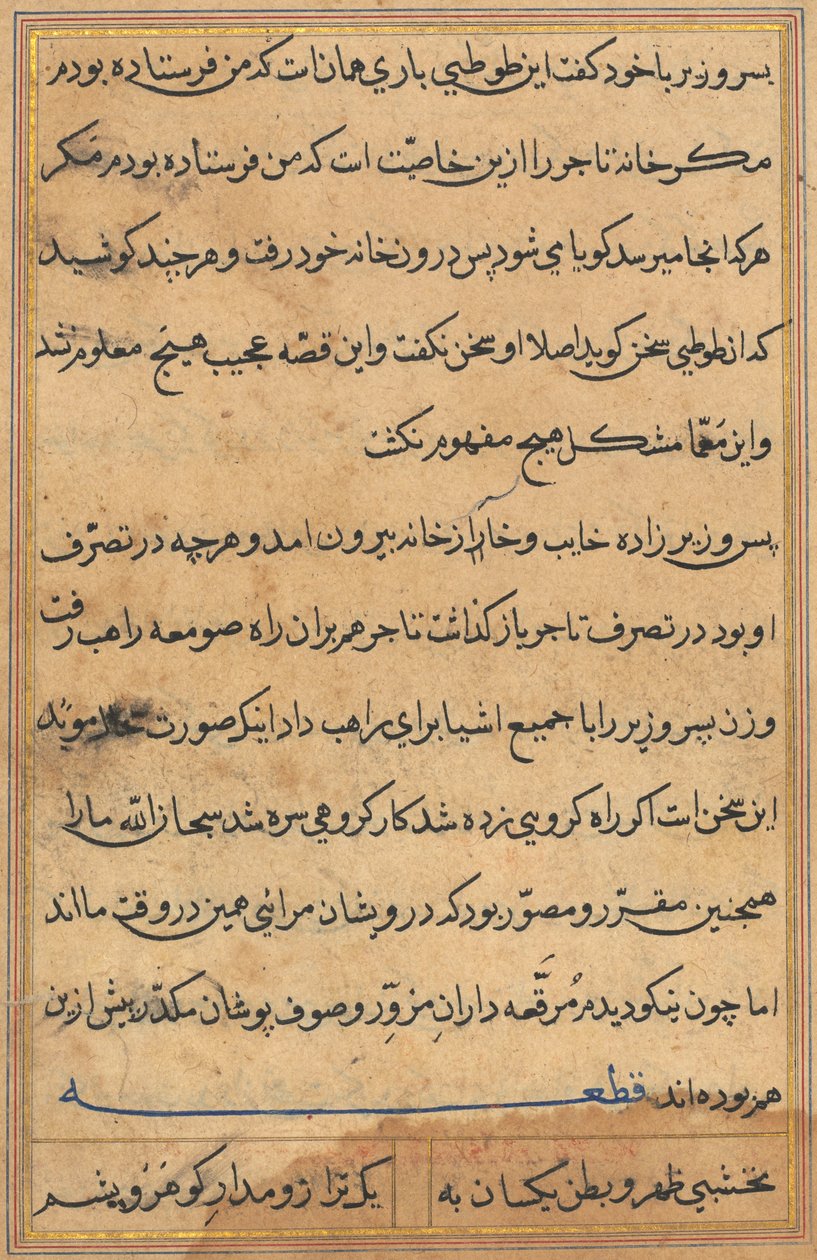 پسر وزیر با خود کفت این طوطیی باری همان است که من فرستاده بودم
مکر خانهٔ تاجر را ازین خاصیّت است که من فرستاده بودم مکر
هر که انجا میرسد کویا می شود پس درون خانه خود رفت و هر چند کوشید
که ان طوطیی سخن کوید اصلا او سخن نکفت و این قصّه عجیب هیچ معلوم نشد
و این مَعّما مشکل هیچ مفهوم نکشت
پس وزیر زاده خایب و خار از خانه بیرون امد و هر چه در تصرّف
او بود در تصرف تاجر باز کذاشت تاجر هم بران راه صومعه راهب رفت
و زن پسر وزیر را با جمیع اشیا برای راهب داد اینک صورت حال موید
این سخن است اکر راه کروهیی زده شد کار کروهی سره شد سبحان الله ما را
همچنین مقرّر و مصوّر بود که درویشان مرائیی همین در وقت ما اند
اما چون نیکو دیدم مُرقَّعه دارانِ مزوِّر و صوف پوشان مکدّر پیش ازین
هم بوده اند قطعه
نخشبی ظهر و بطن یکسان به یک ترازو مدارِ کو هَر و پشم